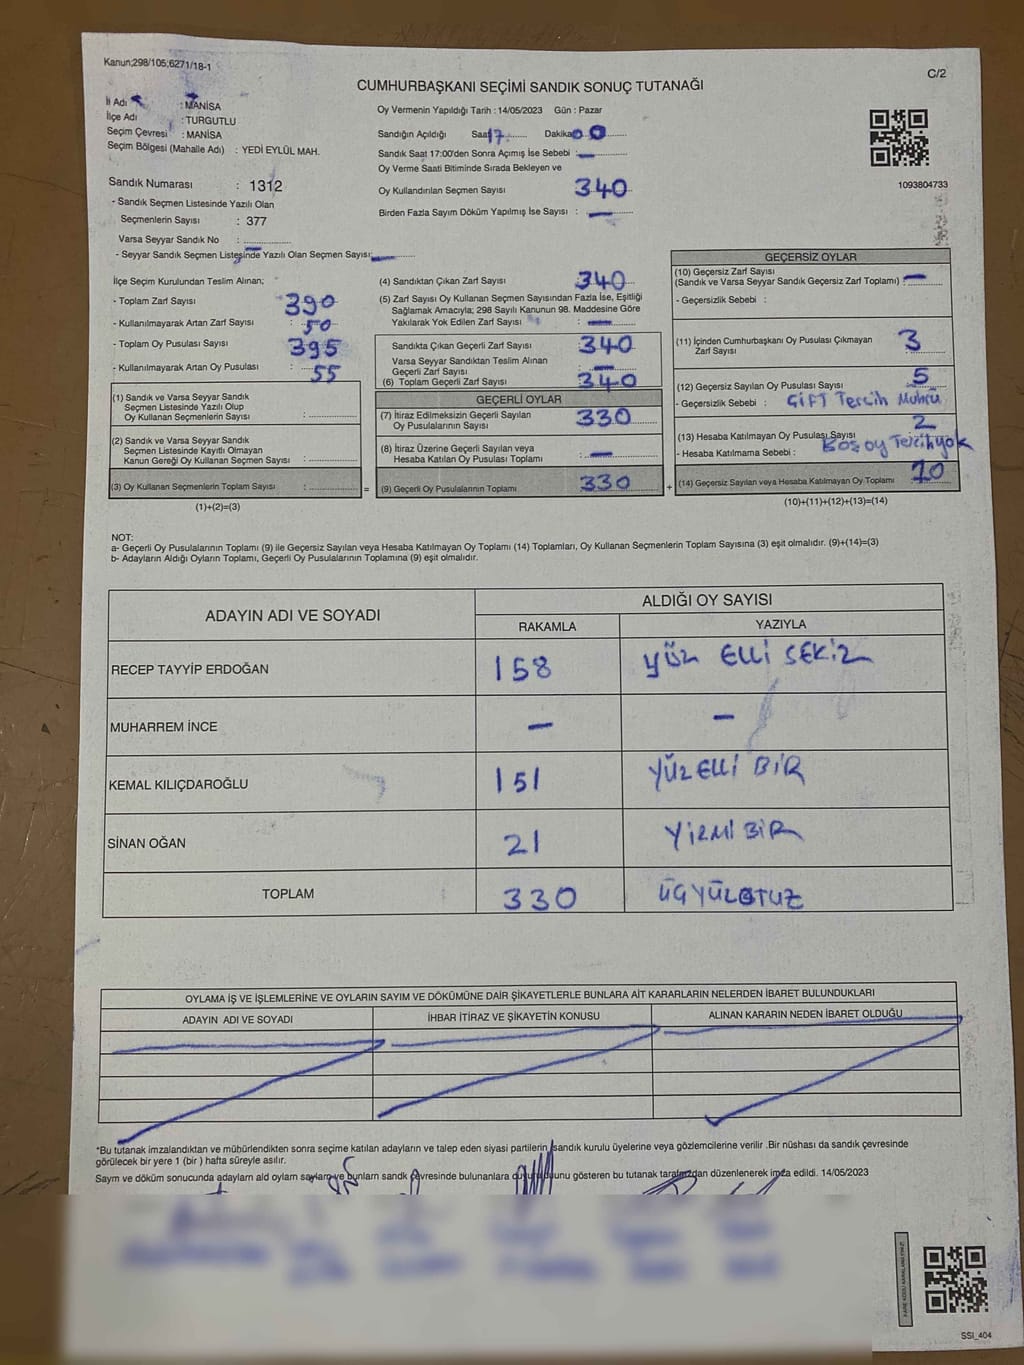 Kanun;298/105;6271/18-1
C/2
CUMHURBAŞKANI SEÇİMİ SANDIK SONUÇ TUTANAĞI
İl Adı : MANİSA
İlçe Adı : TURGUTLU
Seçim Çevresi : MANİSA
Seçim Bölgesi (Mahalle Adı) : YEDİ EYLÜL MAH.
Sandık Numarası : 1312
- Sandık Seçmen Listesinde Yazılı Olan
Seçmenlerin Sayısı : 377
Varsa Seyyar Sandık No : ............
- Seyyar Sandık Seçmen Listesinde Yazılı Olan Seçmen Sayısı: —
Oy Vermenin Yapıldığı Tarih : 14/05/2023 Gün : Pazar
Sandığın Açıldığı Saat 17 Dakika 00
Sandık Saat 17:00'den Sonra Açımış İse Sebebi : —
Oy Verme Saati Bitiminde Sırada Bekleyen ve
Oy Kullandırılan Seçmen Sayısı 340
Birden Fazla Sayım Döküm Yapılmış İse Sayısı : —
1093804733
İlçe Seçim Kurulundan Teslim Alınan;
- Toplam Zarf Sayısı 390
- Kullanılmayarak Artan Zarf Sayısı : 50
- Toplam Oy Pusulası Sayısı 395
- Kullanılmayarak Artan Oy Pusulası : 55
(1) Sandık ve Varsa Seyyar Sandık
Seçmen Listesinde Yazılı Olup
Oy Kullanan Seçmenlerin Sayısı : ............
(2) Sandık ve Varsa Seyyar Sandık
Seçmen Listesinde Kayıtlı Olmayan
Kanun Gereği Oy Kullanan Seçmen Sayısı : ............
(3) Oy Kullanan Seçmenlerin Toplam Sayısı : ............ =
(1)+(2)=(3)
(4) Sandıktan Çıkan Zarf Sayısı 340
(5) Zarf Sayısı Oy Kullanan Seçmen Sayısından Fazla İse, Eşitliği
Sağlamak Amacıyla; 298 Sayılı Kanunun 98. Maddesine Göre
Yakılarak Yok Edilen Zarf Sayısı : —
Sandıkta Çıkan Geçerli Zarf Sayısı : 340
Varsa Seyyar Sandıktan Teslim Alınan
Geçerli Zarf Sayısı : —
(6) Toplam Geçerli Zarf Sayısı : 340
GEÇERLİ OYLAR
(7) İtiraz Edilmeksizin Geçerli Sayılan
Oy Pusulalarının Sayısı : 330
(8) İtiraz Üzerine Geçerli Sayılan veya
Hesaba Katılan Oy Pusulası Toplamı : —
(9) Geçerli Oy Pusulalarının Toplamı : 330 +
GEÇERSİZ OYLAR
(10) Geçersiz Zarf Sayısı
(Sandık ve Varsa Seyyar Sandık Geçersiz Zarf Toplamı) : —
- Geçersizlik Sebebi :
(11) İçinden Cumhurbaşkanı Oy Pusulası Çıkmayan
Zarf Sayısı 3
(12) Geçersiz Sayılan Oy Pusulası Sayısı 5
- Geçersizlik Sebebi : ÇİFT Tercih Mührü
(13) Hesaba Katılmayan Oy Pusulası Sayısı 2
- Hesaba Katılmama Sebebi : Boş oy Tercih yok
(14) Geçersiz Sayılan veya Hesaba Katılmayan Oy Toplamı 10
(10)+(11)+(12)+(13)=(14)
NOT:
a- Geçerli Oy Pusulalarının Toplamı (9) ile Geçersiz Sayılan veya Hesaba Katılmayan Oy Toplamı (14) Toplamları, Oy Kullanan Seçmenlerin Toplam Sayısına (3) eşit olmalıdır. (9)+(14)=(3)
b- Adayların Aldığı Oyların Toplamı, Geçerli Oy Pusulalarının Toplamına (9) eşit olmalıdır.
ADAYIN ADI VE SOYADI ALDIĞI OY SAYISI
RAKAMLA YAZIYLA
RECEP TAYYİP ERDOĞAN 158 YÜZ ELLİ SEKİZ
MUHARREM İNCE — —
KEMAL KILIÇDAROĞLU 151 YÜZELLİ BİR
SİNAN OĞAN 21 YİRMİ BİR
TOPLAM 330 ÜÇYÜZOTUZ
OYLAMA İŞ VE İŞLEMLERİNE VE OYLARIN SAYIM VE DÖKÜMÜNE DAİR ŞİKAYETLERLE BUNLARA AİT KARARLARIN NELERDEN İBARET BULUNDUKLARI
ADAYIN ADI VE SOYADI İHBAR İTİRAZ VE ŞİKAYETİN KONUSU ALINAN KARARIN NEDEN İBARET OLDUĞU
*Bu tutanak imzalandıktan ve mühürlendikten sonra seçime katılan adayların ve talep eden siyasi partilerin sandık kurulu üyelerine veya gözlemcilerine verilir .Bir nüshası da sandık çevresinde
görülecek bir yere 1 (bir ) hafta süreyle asılır.
Sayım ve döküm sonucunda adayların aldı oyların sayıları ve bunların sandk çevresinde bulunanlara duyurulduğunu gösteren bu tutanak tarafımızdan düzenlenerek imza edildi. 14/05/2023
SSI_404